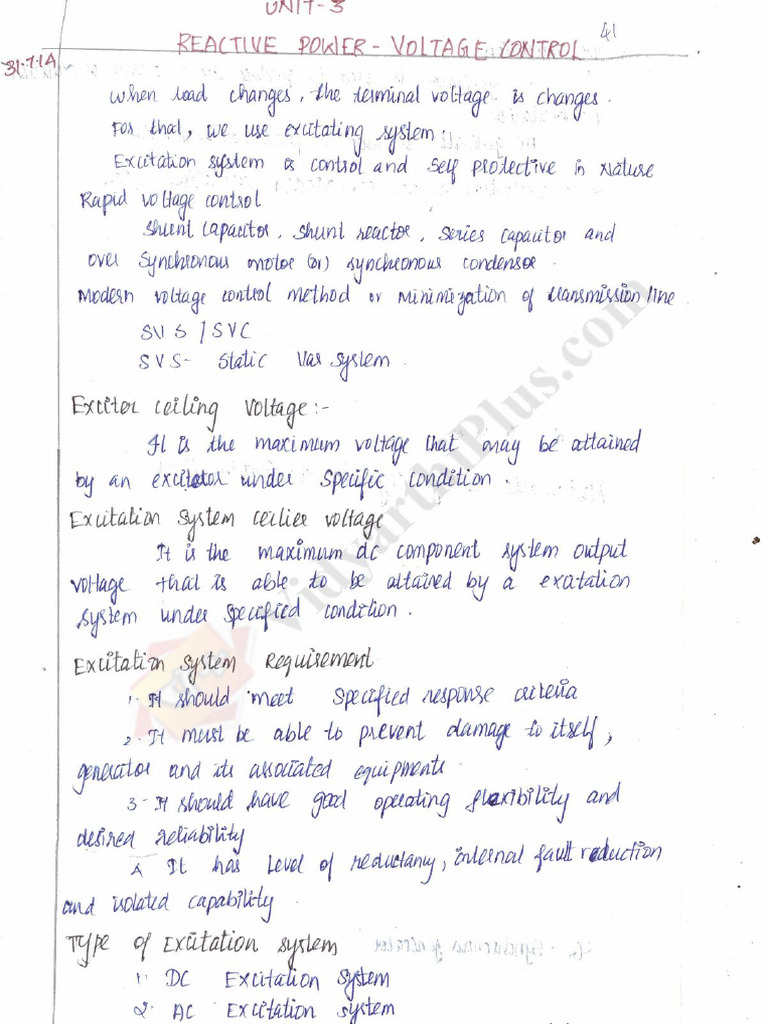 UNIT-3
41
REACTIVE POWER - VOLTAGE CONTROL
31.7.14
When load changes, the terminal voltage is changes.
For that, we use excitating system.
Excitation system is control and self protective in nature
Rapid voltage control
shunt capacitor, shunt reactor, series capacitor and
over synchronous motor (or) synchronous condensor.
Modern voltage control method or minimization of transmission line
SVS / SVC
SVS- Static Var system.
Exciter ceiling voltage:-
It is the maximum voltage that may be attained
by an excitator under specific condition.
Excitation system ceilier voltage
It is the maximum dc component system output
voltage that is able to be attained by a excitation
system under specified condition.
Excitation system requirement
1. It should meet specified response criteria
2. It must be able to prevent damage to itself,
generator and its associated equipments.
3. It should have good operating flexibility and
desired reliability
4. It has level of reductancy, internal fault reduction
and isolated capability.
Type of Excitation system
1. DC Excitation system
2. AC Excitation system
VidyarthiPlus.com